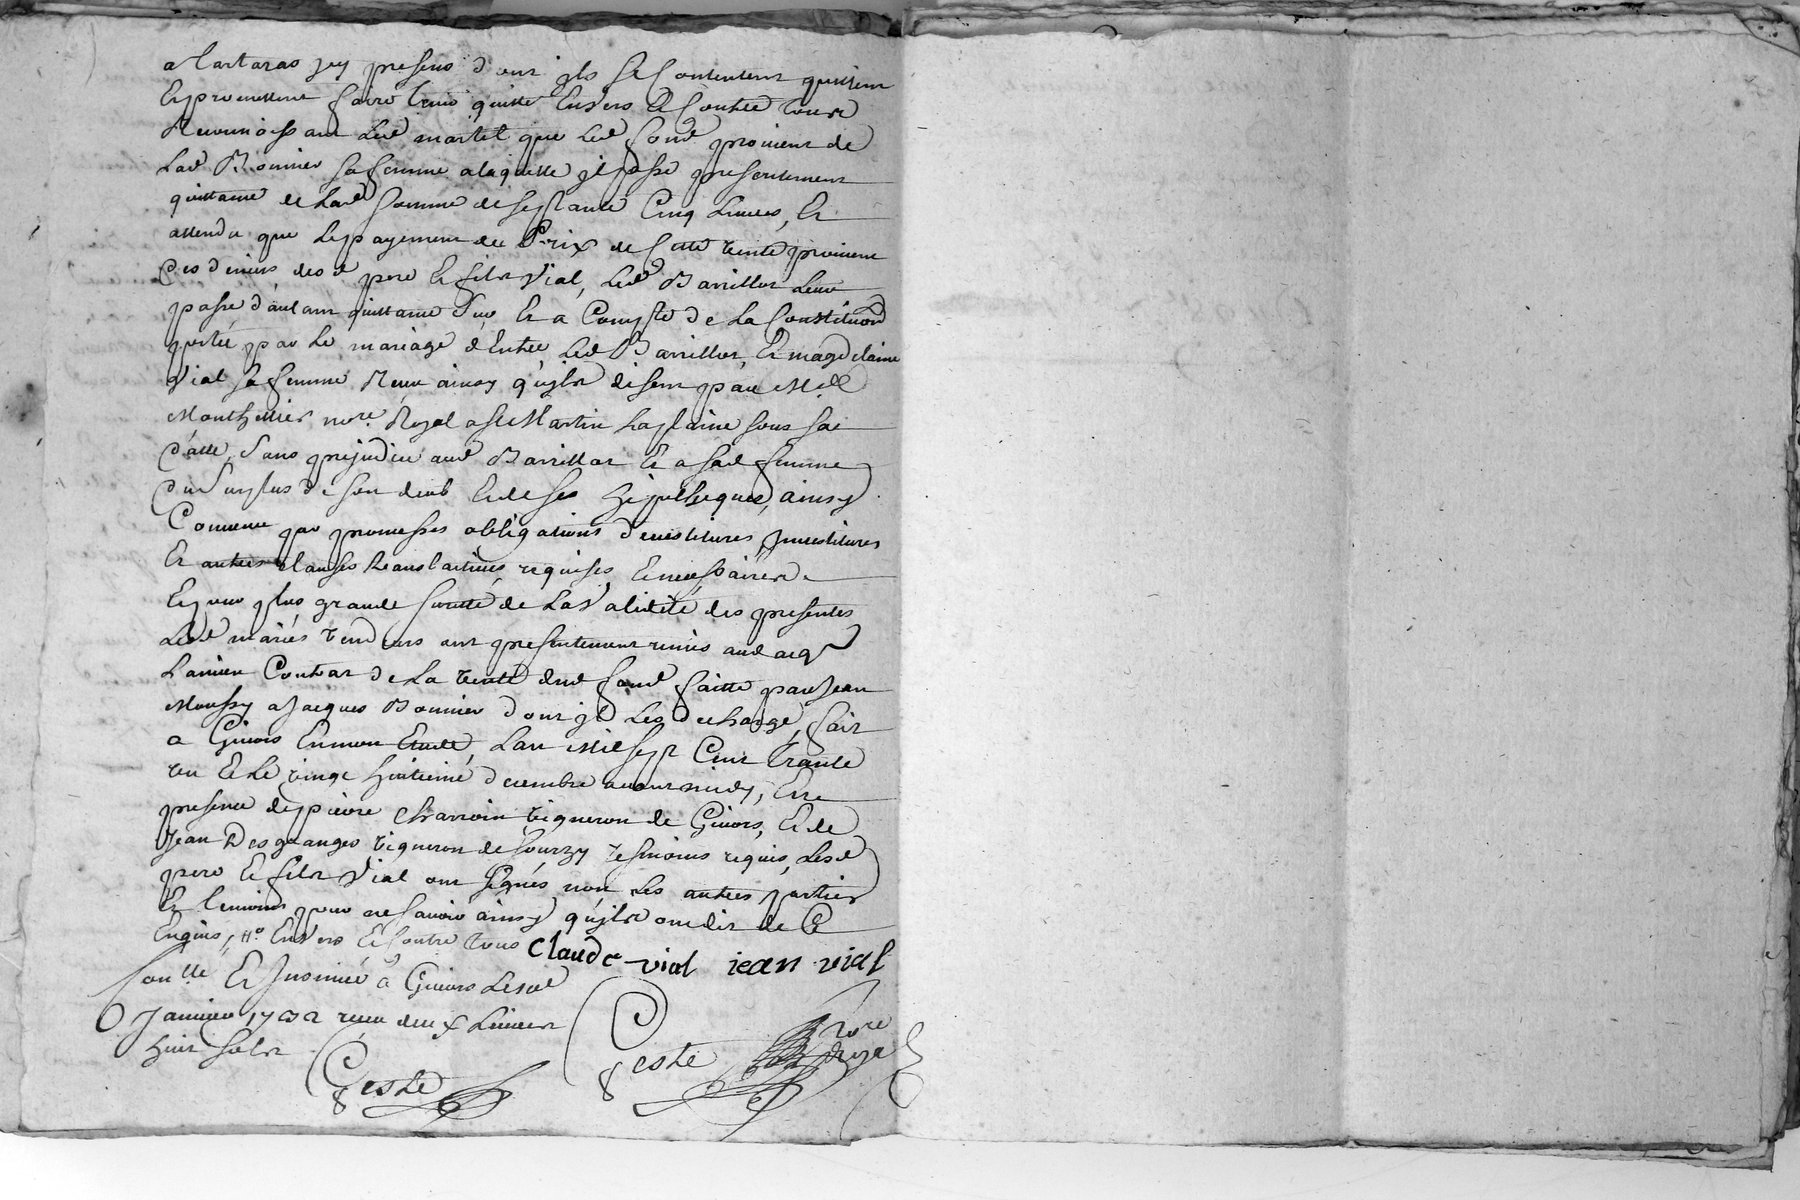 a Tartaras icy presens dont ils se contentent quittent
et promettent faire tenir quitte envers et contre tous
Reconnoissant led martel que led fond provient de
Lad Bonnier sa femme a laquelle il passe presentement
quittance de lad somme de septante cinq livres, et
attendu que le payement du Prix de cette vente provient
des deniers desd pere et fils Vial, led Barrillot leur
passe d'autant quittance sur et a Compte de la Constitution
portée par le mariage d'entre led Barrillot et magdelaine
Vial sa femme Receu ainsy qu'ils disent par Me
Monthellier nore Royal a St Martin la plaine sous sa
datte, sans prejudice aud Barrillot et a sad femme
du surplus de son deub et de ses hipotheques, ainsy
Convenu par promesses obligations devestitures, investitures
et autres clauses translatives requises et necessaires
Et pour plus grande sureté de la validité des presentes
Lesd mariés vendeurs ont presentement remis aud acqr
L'ancien Contrat de la vente dud fond faitte par Jean
Moussy a Jacques Bonnier dont il les decharge, fait
a Givors en mon Etude, l'an Mil sept Cent trante
un et le vingt huitieme decembre avant midy, En
presence de pierre Charvoin vigneron de Givors, et de
Jean Desgranges vigneron de sourzy tesmoins requis, lesd
pere et fils Vial ont signés non les autres parties
et temoins pour ne savoir ainsy qu'ils ont dit de ce
Enquis, envers et contre tous Claude vial jean vial
Conllé et Insinué a Givors le
Janvier 1732 receu deux livres
huit sols
Geste
Geste nore Royal